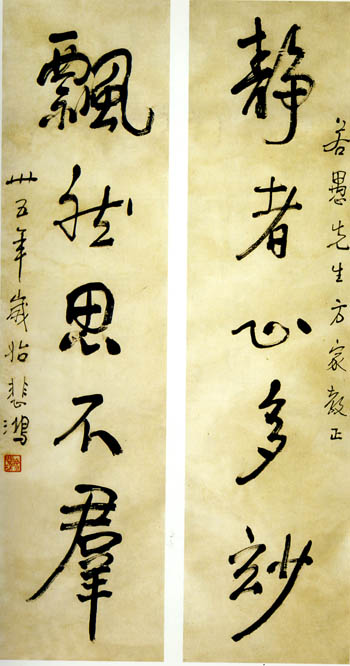 若愚先生方家教正
靜者心多玅
飄然思不羣
卅五年歲始悲鴻